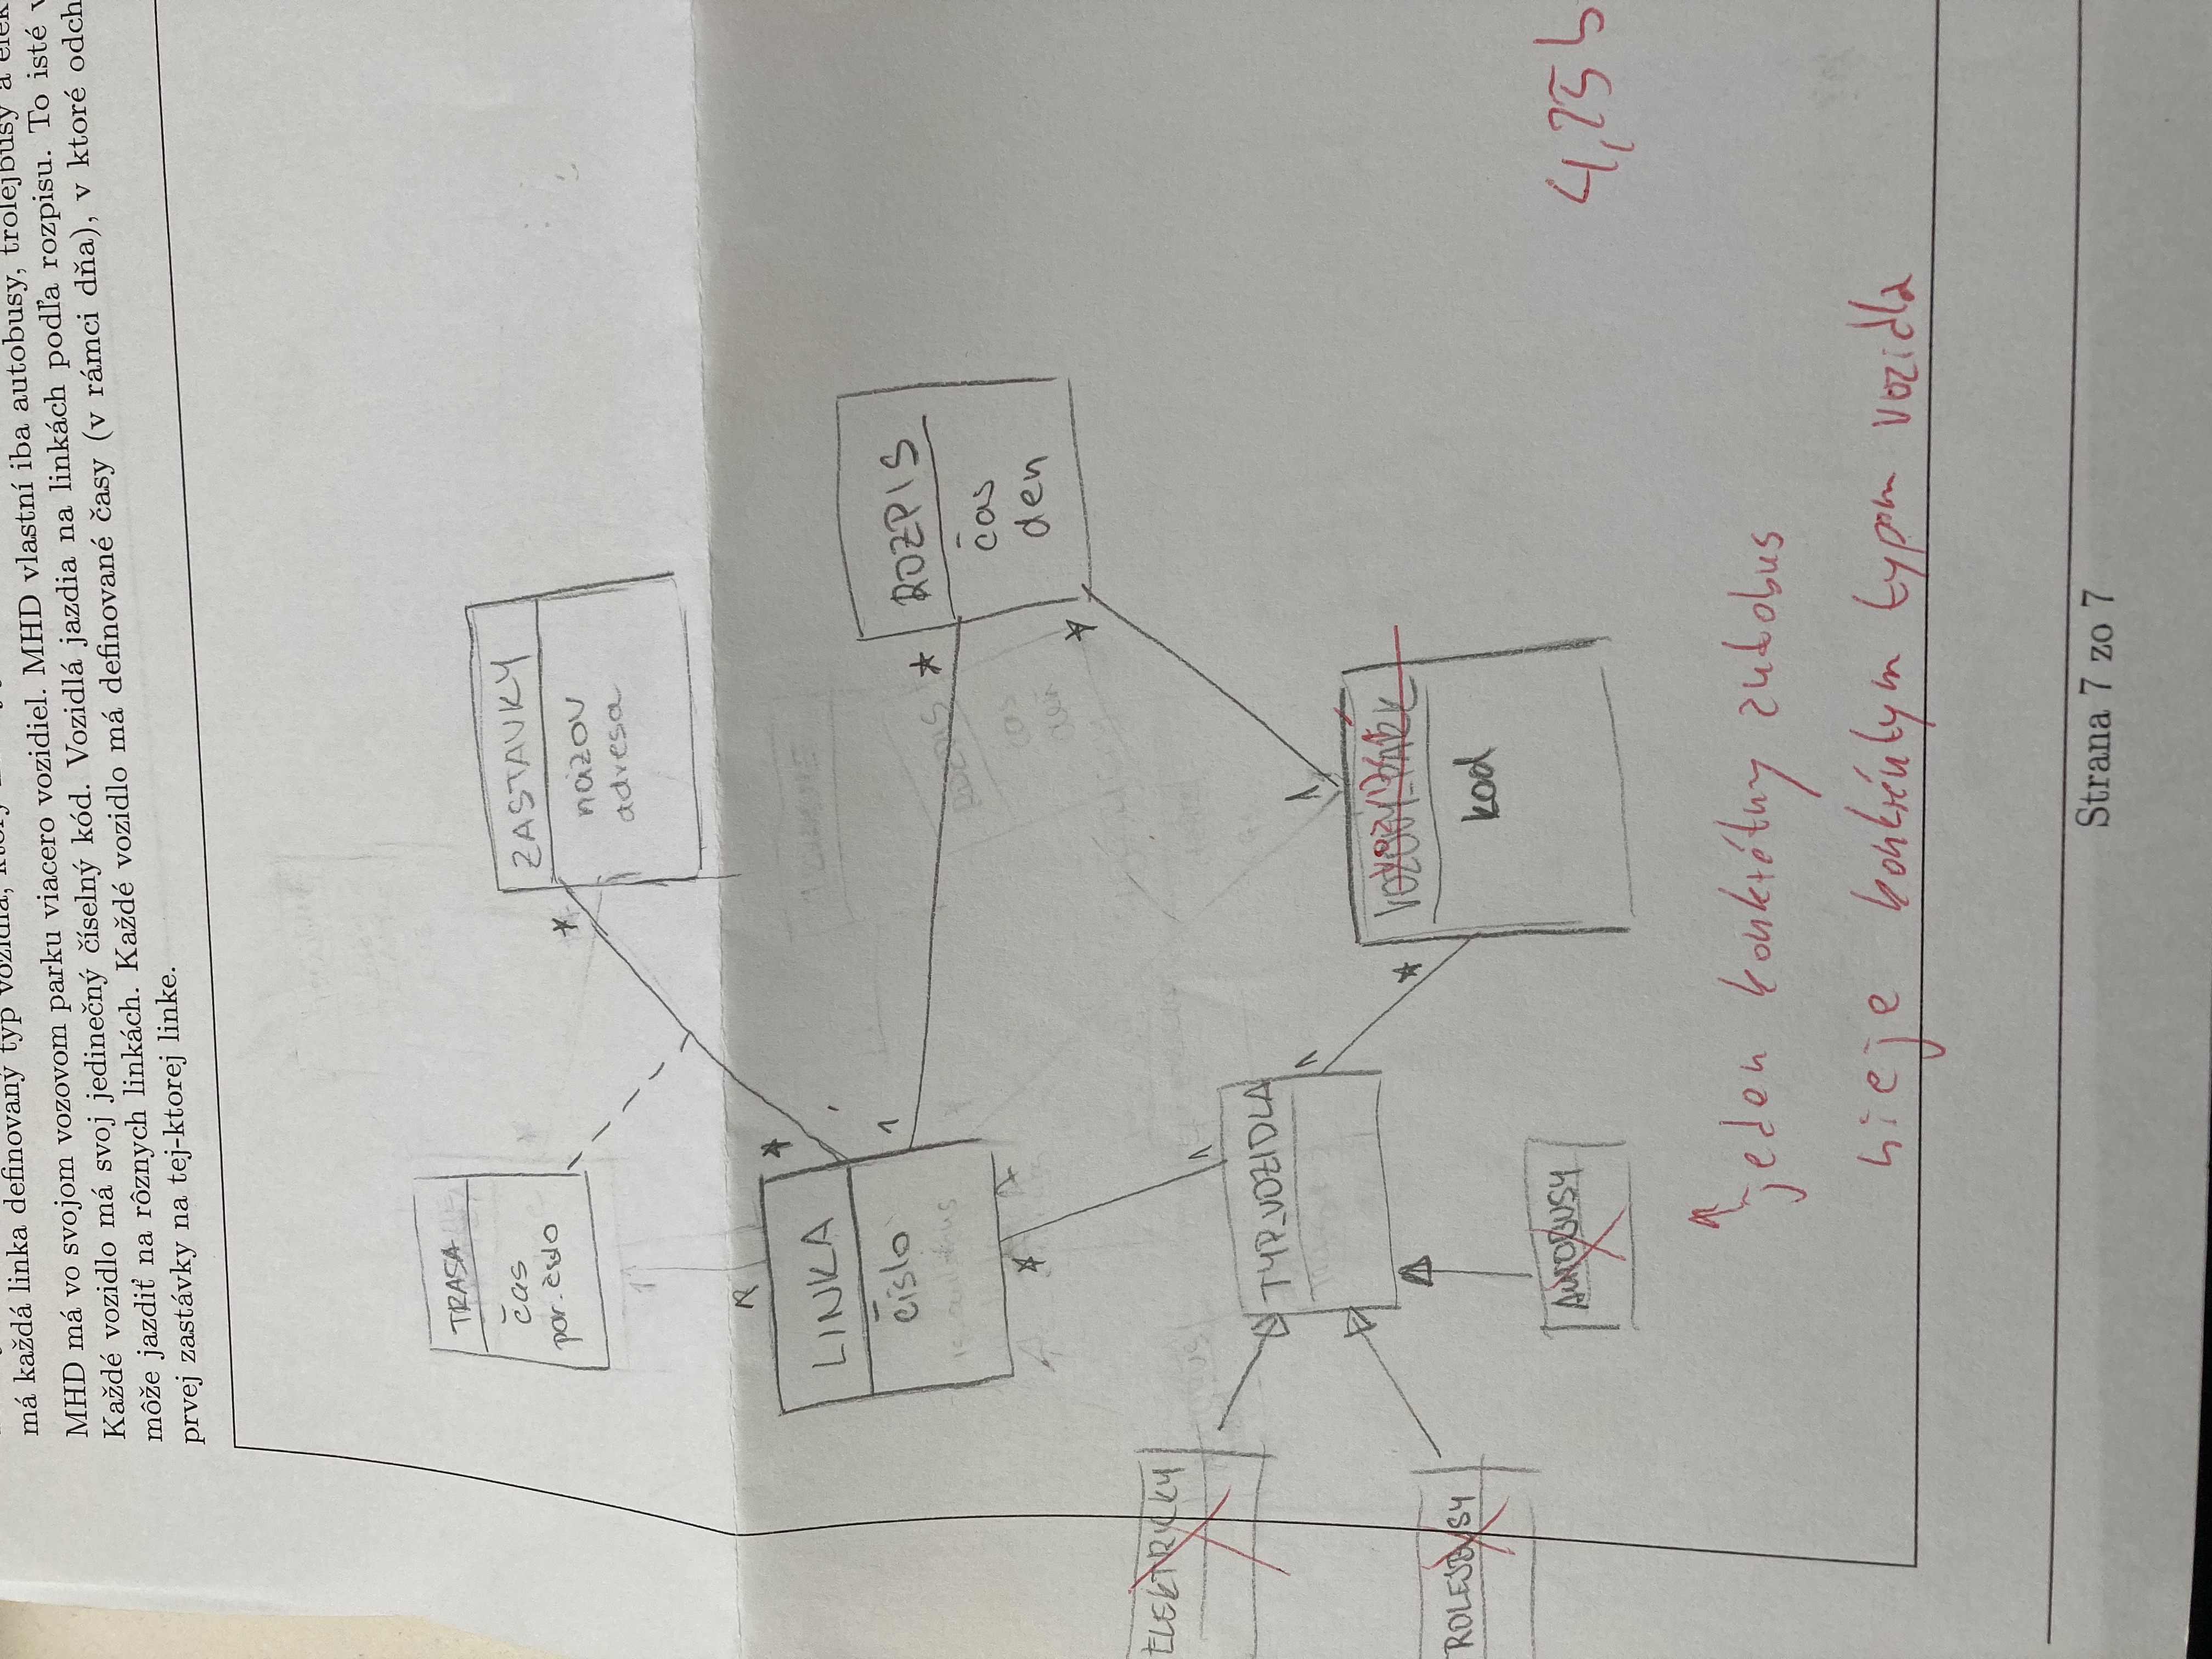 má každá linka definovaný typ vozidla,
MHD má vo svojom vozovom parku viacero vozidiel. MHD vlastní iba autobusy, trolejbusy a elek
Každé vozidlo má svoj jedinečný číselný kód. Vozidlá jazdia na linkách podľa rozpisu. To isté v
môže jazdiť na rôznych linkách. Každé vozidlo má definované časy (v rámci dňa), v ktoré odch
prvej zastávky na tej-ktorej linke.
TRASA
čas
por. číslo
ZASTAVKY
názov
adresa
*
*
LINKA
číslo
1
*
ROZPIS
čas
den
*
*
1
ELEKTRICKY
TYP_VOZIDLA
1
*
1
VOZOVY_PARK
kod
ROLEJBUSY
AUTOBUSY
4,25 b
jeden konkrétny autobus
nieje konkréntym typom vozidla
Strana 7 zo 7